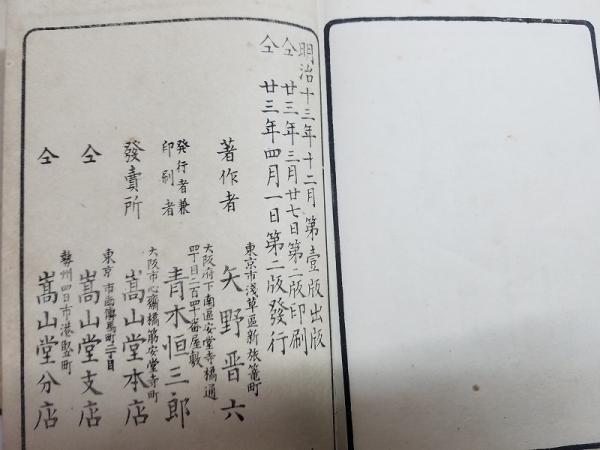 明治十三年十二月第壹版出版
仝 廿三年三月廿七日第二版印刷
仝 廿三年四月一日第二版發行
東京市淺草區新旅籠町
著作者 矢野晋六
大阪府下南區安堂寺橋通
四丁目二百四十番屋敷
發行者兼
印刷者 青木恒三郎
大阪市心齋橋筋安堂寺町
發賣所 嵩山堂本店
東京市傳馬町二丁目
仝 嵩山堂支店
勢州四日市港竪町
仝 嵩山堂分店